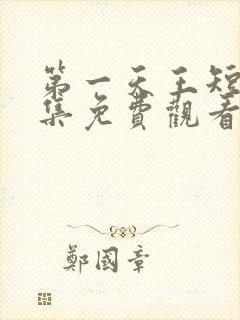 第一天王短
集免費觀看
鄭國章